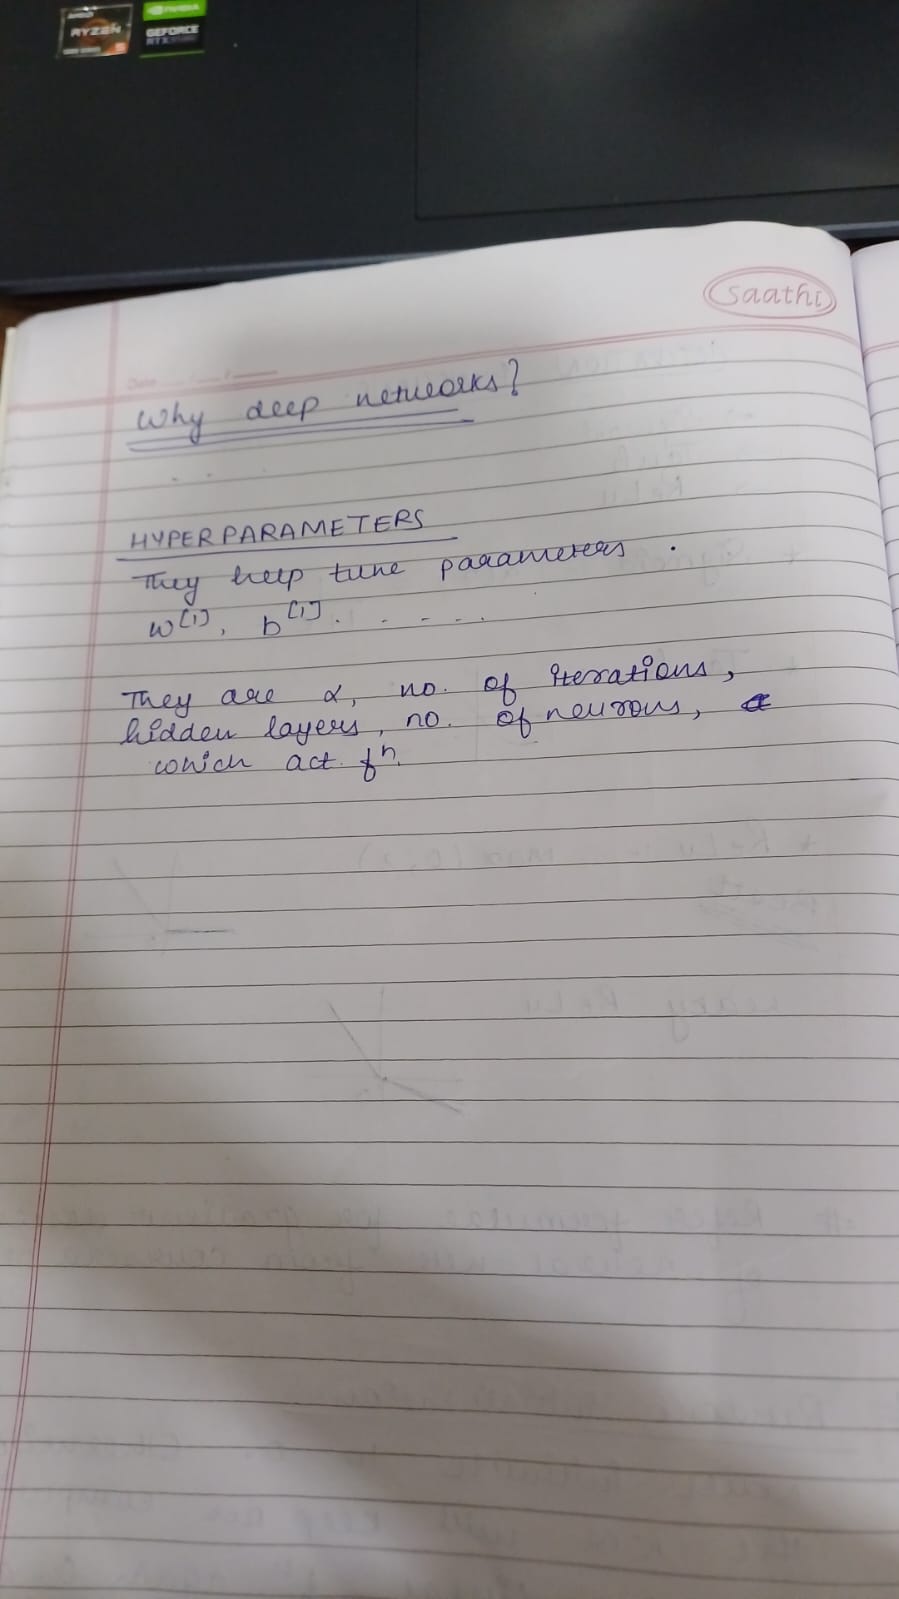 AMD
RYZEN
NVIDIA
GEFORCE
RTX
saathi
Date
Why deep networks?
HYPERPARAMETERS
They help tune parameters .
w[1], b[1]. . - . .
They are α, no. of iterations,
hidden layers, no. of neurons,
which act. fn.